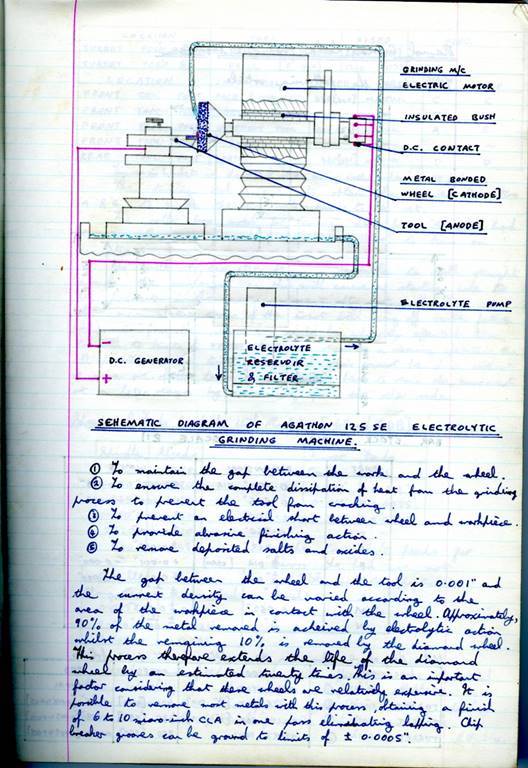 GRINDING M/C
ELECTRIC MOTOR
INSULATED BUSH
D.C. CONTACT
METAL BONDED
WHEEL [CATHODE]
TOOL [ANODE]
ELECTROLYTE PUMP
D.C. GENERATOR
-
+
ELECTROLYTE
RESERVOIR
& FILTER
SEHEMATIC DIAGRAM OF AGATHON 125 SE ELECTROLYTIC
GRINDING MACHINE.
① To maintain the gap between the work and the wheel.
② To ensure the complete dissipation of heat from the grinding
process to prevent the tool from cracking.
③ To prevent an electrical short between wheel and workpiece.
④ To provide abrasive finishing action.
⑤ To remove deposited salts and oxides.
The gap between the wheel and the tool is 0.001" and
the current density can be varied according to the
area of the workpiece in contact with the wheel. Approximately,
90% of the metal removed is acheived by electrolytic action
whilst the remaining 10% is removed by the diamond wheel.
This process therefore extends the life of the diamond
wheel by an estimated twenty times. This is an important
factor considering that these wheels are relatively expensive. It is
possible to remove most metals with this process obtaining a finish
of 6 to 10 micro-inch CLA in one pass eliminating lapping. Chip
breaker grooves can be ground to limits of ± 0.0005".